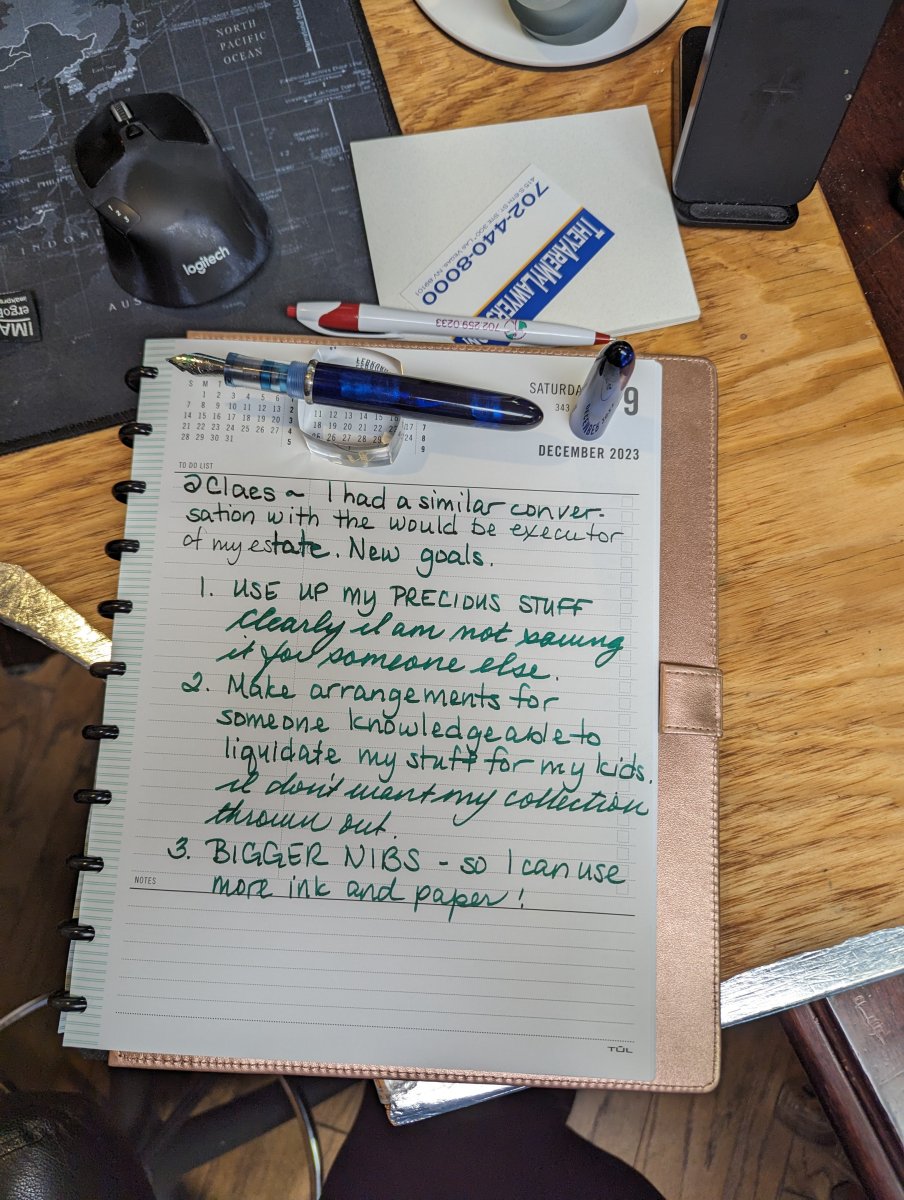 NORTH
PACIFIC
OCEAN
logitech
AUS
IMA
ergo
702-440-8000
415 S 6TH ST. STE 300
LAS VEGAS, NV 89101
THEYAREMYLAWYERS
702 259 0233
S M T
1 2 3
7 8 9 10
14 15 16 17
21 22 23 24 25 26 27
28 29 30 31
SATURDA
343
9
DECEMBER 2023
TO DO LIST
@Claes ~ I had a similar conver-
sation with the would be executor
of my estate. New goals.
1. USE UP MY PRECIOUS STUFF
Clearly I am not saving
it for someone else.
2. Make arrangements for
someone knowledgeable to
liquidate my stuff for my kids.
I don't want my collection
thrown out.
3. BIGGER NIBS - so I can use
more ink and paper!
NOTES
TUL